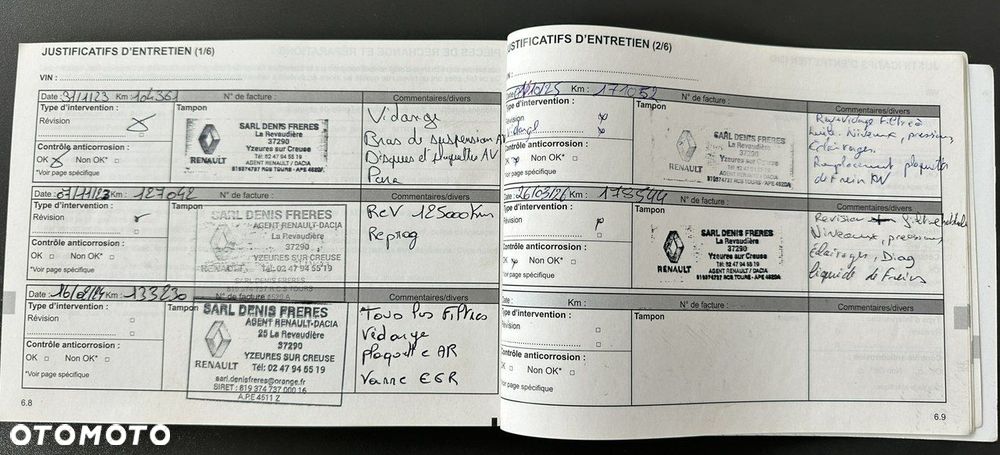 JUSTIFICATIFS D'ENTRETIEN (1/6)
VIN :
Date : 31/1/23 Km : 104361 N° de facture : Commentaires/divers
Type d'intervention :
Révision
Tampon
SARL DENIS FRERES
La Revaudière
37290
Yzeures sur Creuse
Tél: 02 47 94 55 19
AGENT RENAULT / DACIA
RENAULT
Vidange
Bras de suspension
Disques et plaquettes AV
Contrôle anticorrosion :
OK Non OK* :
*Voir page spécifique
Km : 127042 N° de facture : Commentaires/divers
Type d'intervention :
Révision
Tampon
SARL DENIS FRERES
AGENT RENAULT-DACIA
La Revaudière
37290
YZEURES SUR CREUSE
Tél. 02 47 94 55 19
RENAULT
Rev 125000Km
Reprog
Contrôle anticorrosion :
OK Non OK* :
*Voir page spécifique
Date : Km : 133230 N° de facture Commentaires/divers
Type d'intervention :
Révision
Tampon
SARL DENIS FRERES
AGENT RENAULT-DACIA
25 La Revaudière
37290
YZEURES SUR CREUSE
Tél: 02 47 94 55 19
sarl.denisfreres@orange.fr
SIRET : 819 374 737 000 16
A.P.E 4511 Z
RENAULT
Tous les Filtres
Vidange
plaquette AR
Vanne EGR
Contrôle anticorrosion :
OK Non OK* :
*Voir page spécifique
6.8
JUSTIFICATIFS D'ENTRETIEN (2/6)
Date : Km : 171052 N° de facture : Commentaires/divers
Type d'intervention :
Révision
Vidange
Tampon
SARL DENIS FRERES
La Revaudière
37290
Yzeures sur Creuse
Tél: 02 47 94 55 19
AGENT RENAULT / DACIA
RENAULT
Niveaux, pression,
Eclairages.
Remplacement plaquettes
de Frein AV
Contrôle anticorrosion :
OK Non OK* :
*Voir page spécifique
Date : 26/03/26 Km : N° de facture : Commentaires/divers
Type d'intervention :
Révision
Tampon
SARL DENIS FRERES
La Revaudière
37290
Yzeures sur Creuse
Tél: 02 47 94 55 19
AGENT RENAULT / DACIA
RENAULT
Revision
Niveaux, pression
Eclairages, Diag
liquide de Freins
Contrôle anticorrosion :
OK Non OK* :
*Voir page spécifique
Date : Km : N° de facture : Commentaires/divers
Type d'intervention :
Révision
Tampon
Contrôle anticorrosion :
OK Non OK* :
*Voir page spécifique
6.9
OTOMOTO